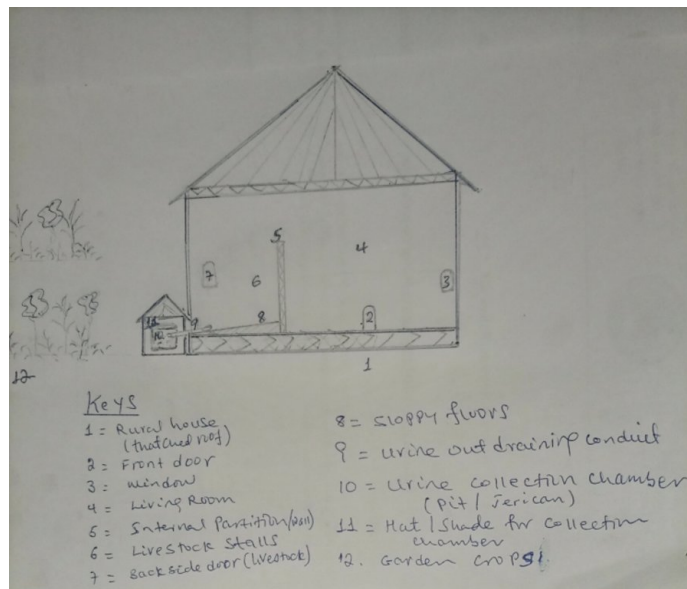 5
4
7
6
3
8
2
9
11
10
1
12
Keys
1 = Rural house
(thatched roof)
2 = Front door
3 = window
4 = Living Room
5 = Internal Partition/wall)
6 = Livestock Stalls
7 = Back side door (livestock)
8 = Sloppy floors
9 = Urine out draining conduit
10 = Urine collection chamber
(Pit / Jerican)
11 = Hat / Shade for collection
chamber
12. Garden crops.